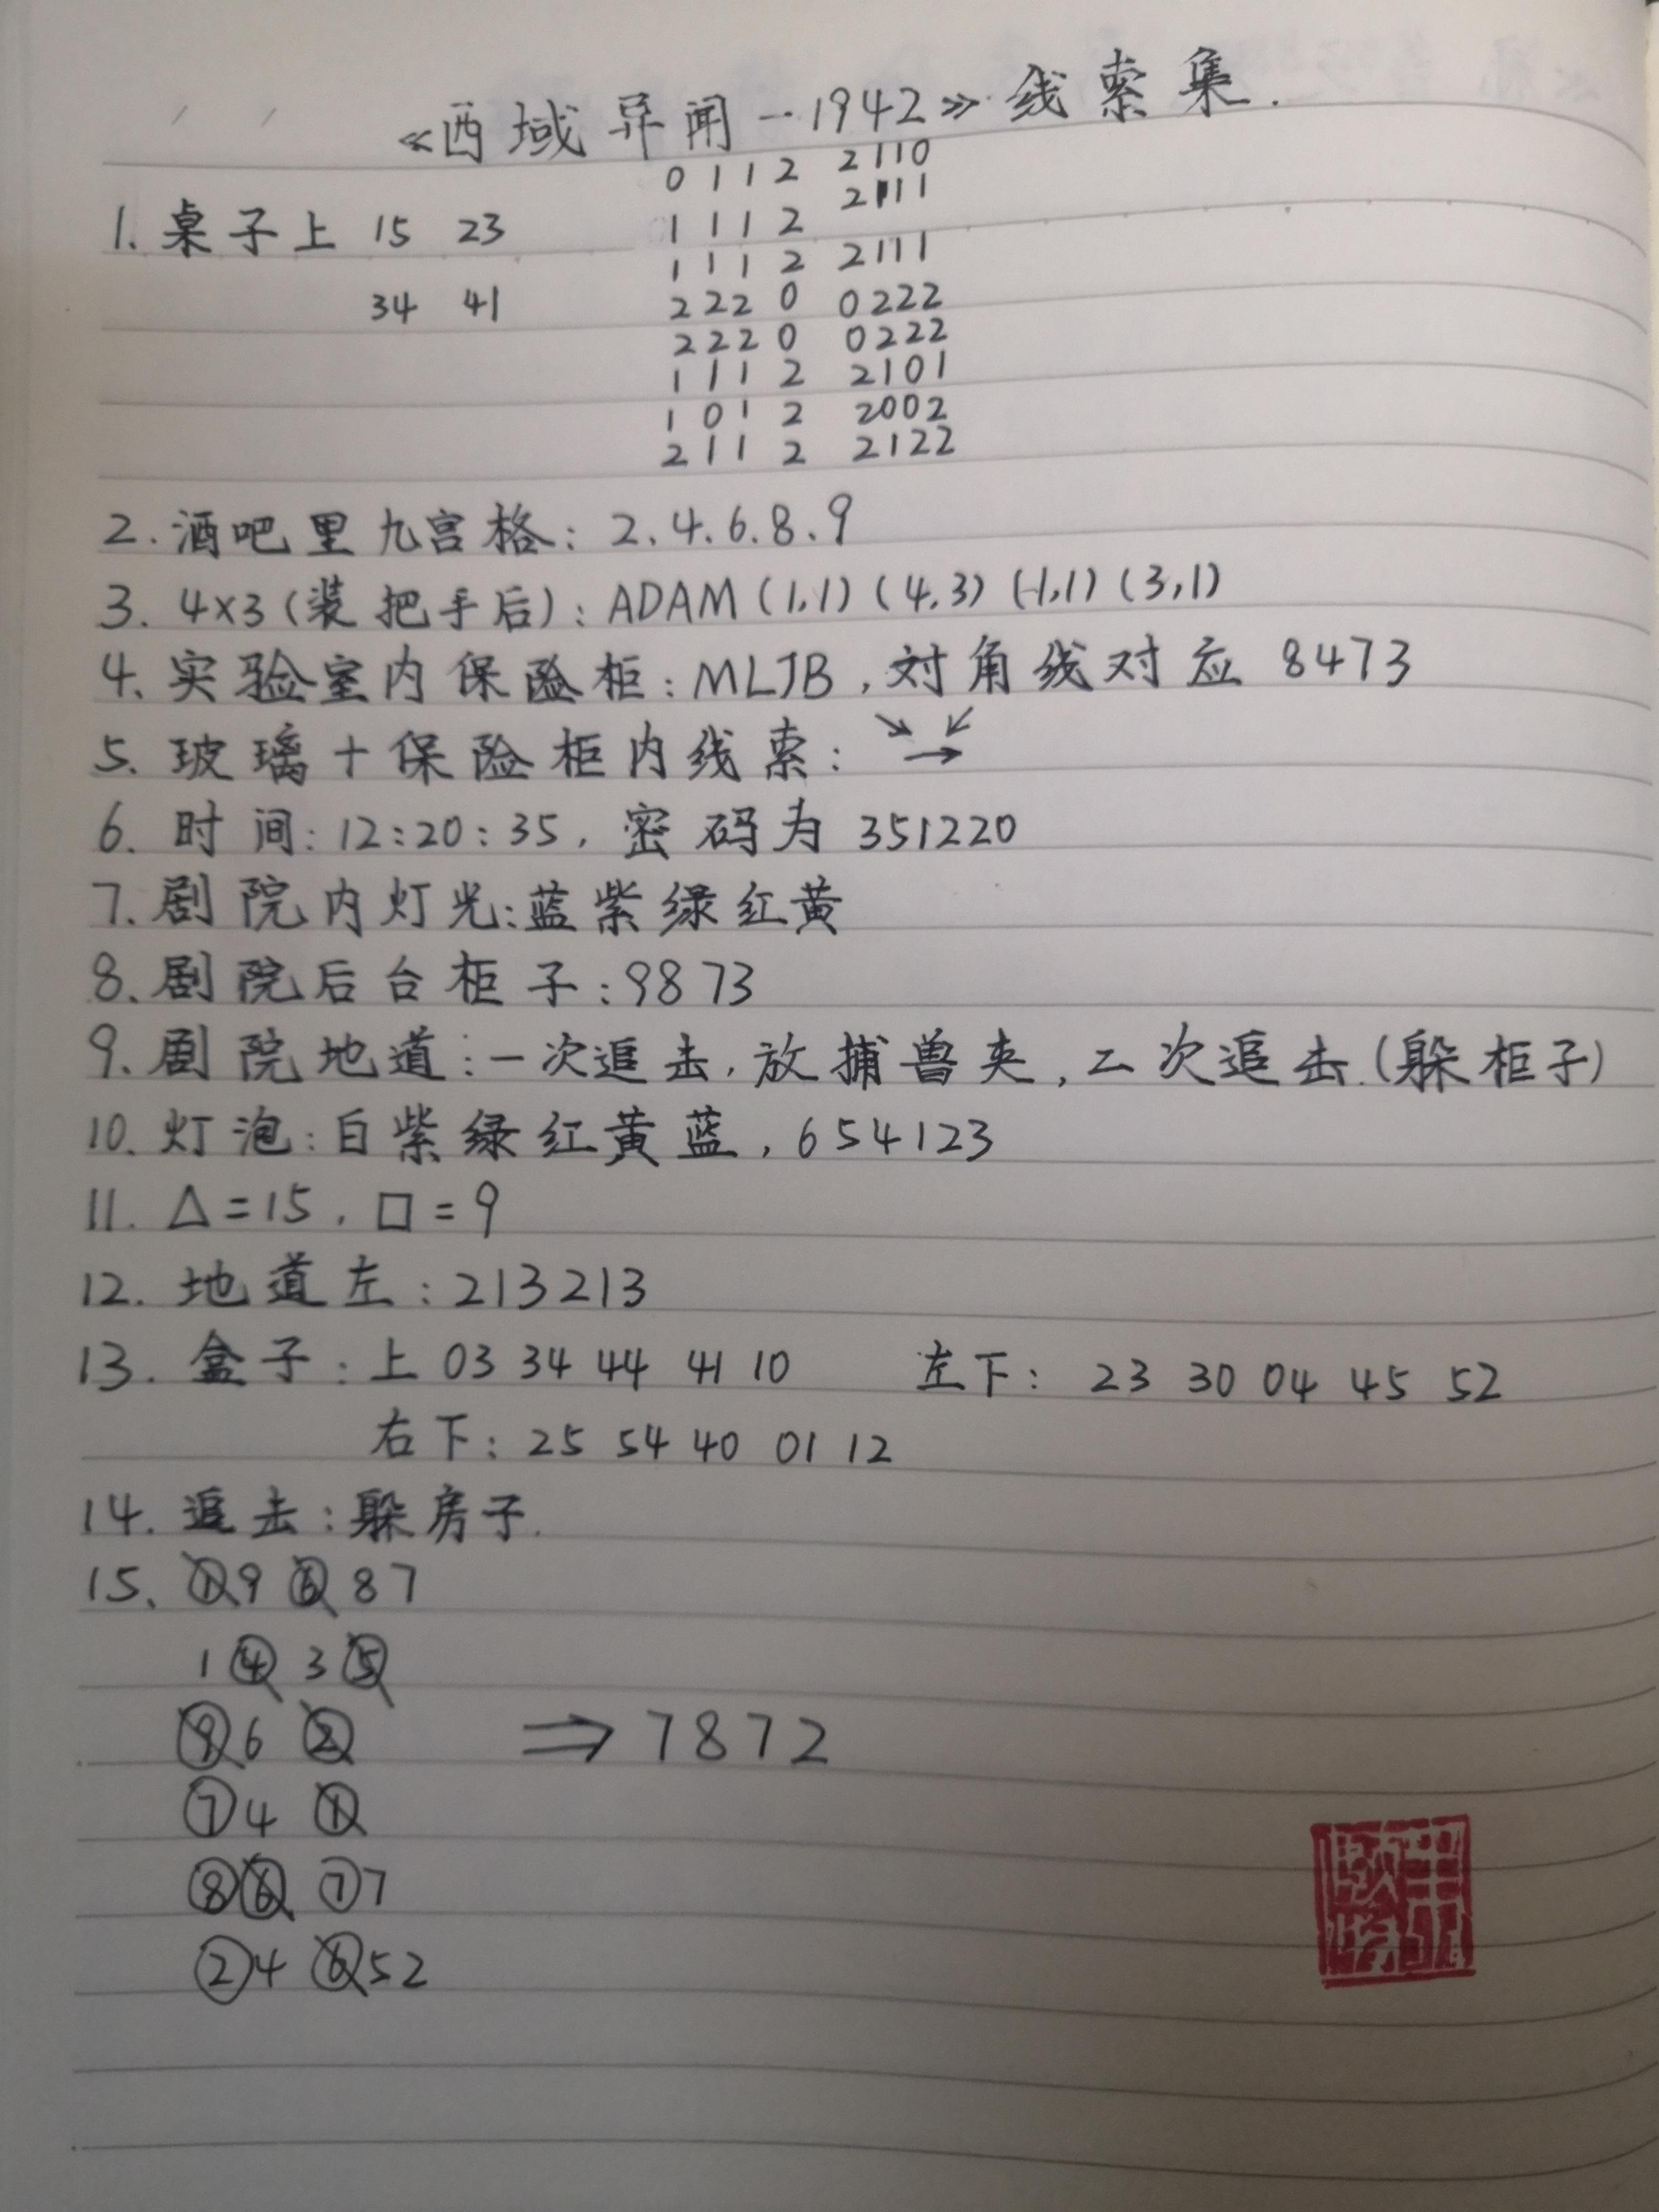 《西域异闻—1942》线索集.
0 1 1 2 2110
1 1 1 2 2111
1. 桌子上 15 23
1 1 1 2 2111
34 41 2 2 2 0 0222
2 2 2 0 0222
1 1 1 2 2101
1 0 1 2 2002
2 1 1 2 2122
2. 酒吧里九宫格: 2.4.6.8.9
3. 4×3(装把手后): ADAM (1,1) (4,3) (1,1) (3,1)
4. 实验室内保险柜: MLJB, 对角线对应 8473
5. 玻璃+保险柜内线索: ↘ ↙ →
6. 时间: 12:20:35, 密码为 351220
7. 剧院内灯光: 蓝紫绿红黄
8. 剧院后台柜子: 9873
9. 剧院地道: 一次追击, 放捕兽夹, 二次追击.(躲柜子)
10. 灯泡: 白紫绿红黄蓝, 654123
11. △=15, □=9
12. 地道左: 213213
13. 盒子: 上 03 34 44 41 10 左下: 23 30 04 45 52
右下: 25 54 40 01 12
14. 追击: 躲房子.
15. ① 9 87
1 ④ 3 ⑤
⑨ 6 ② ⇒ 7872
⑦ 4 ①
⑧ ⑥ ⑦ 7
② 4 ⑥ 52